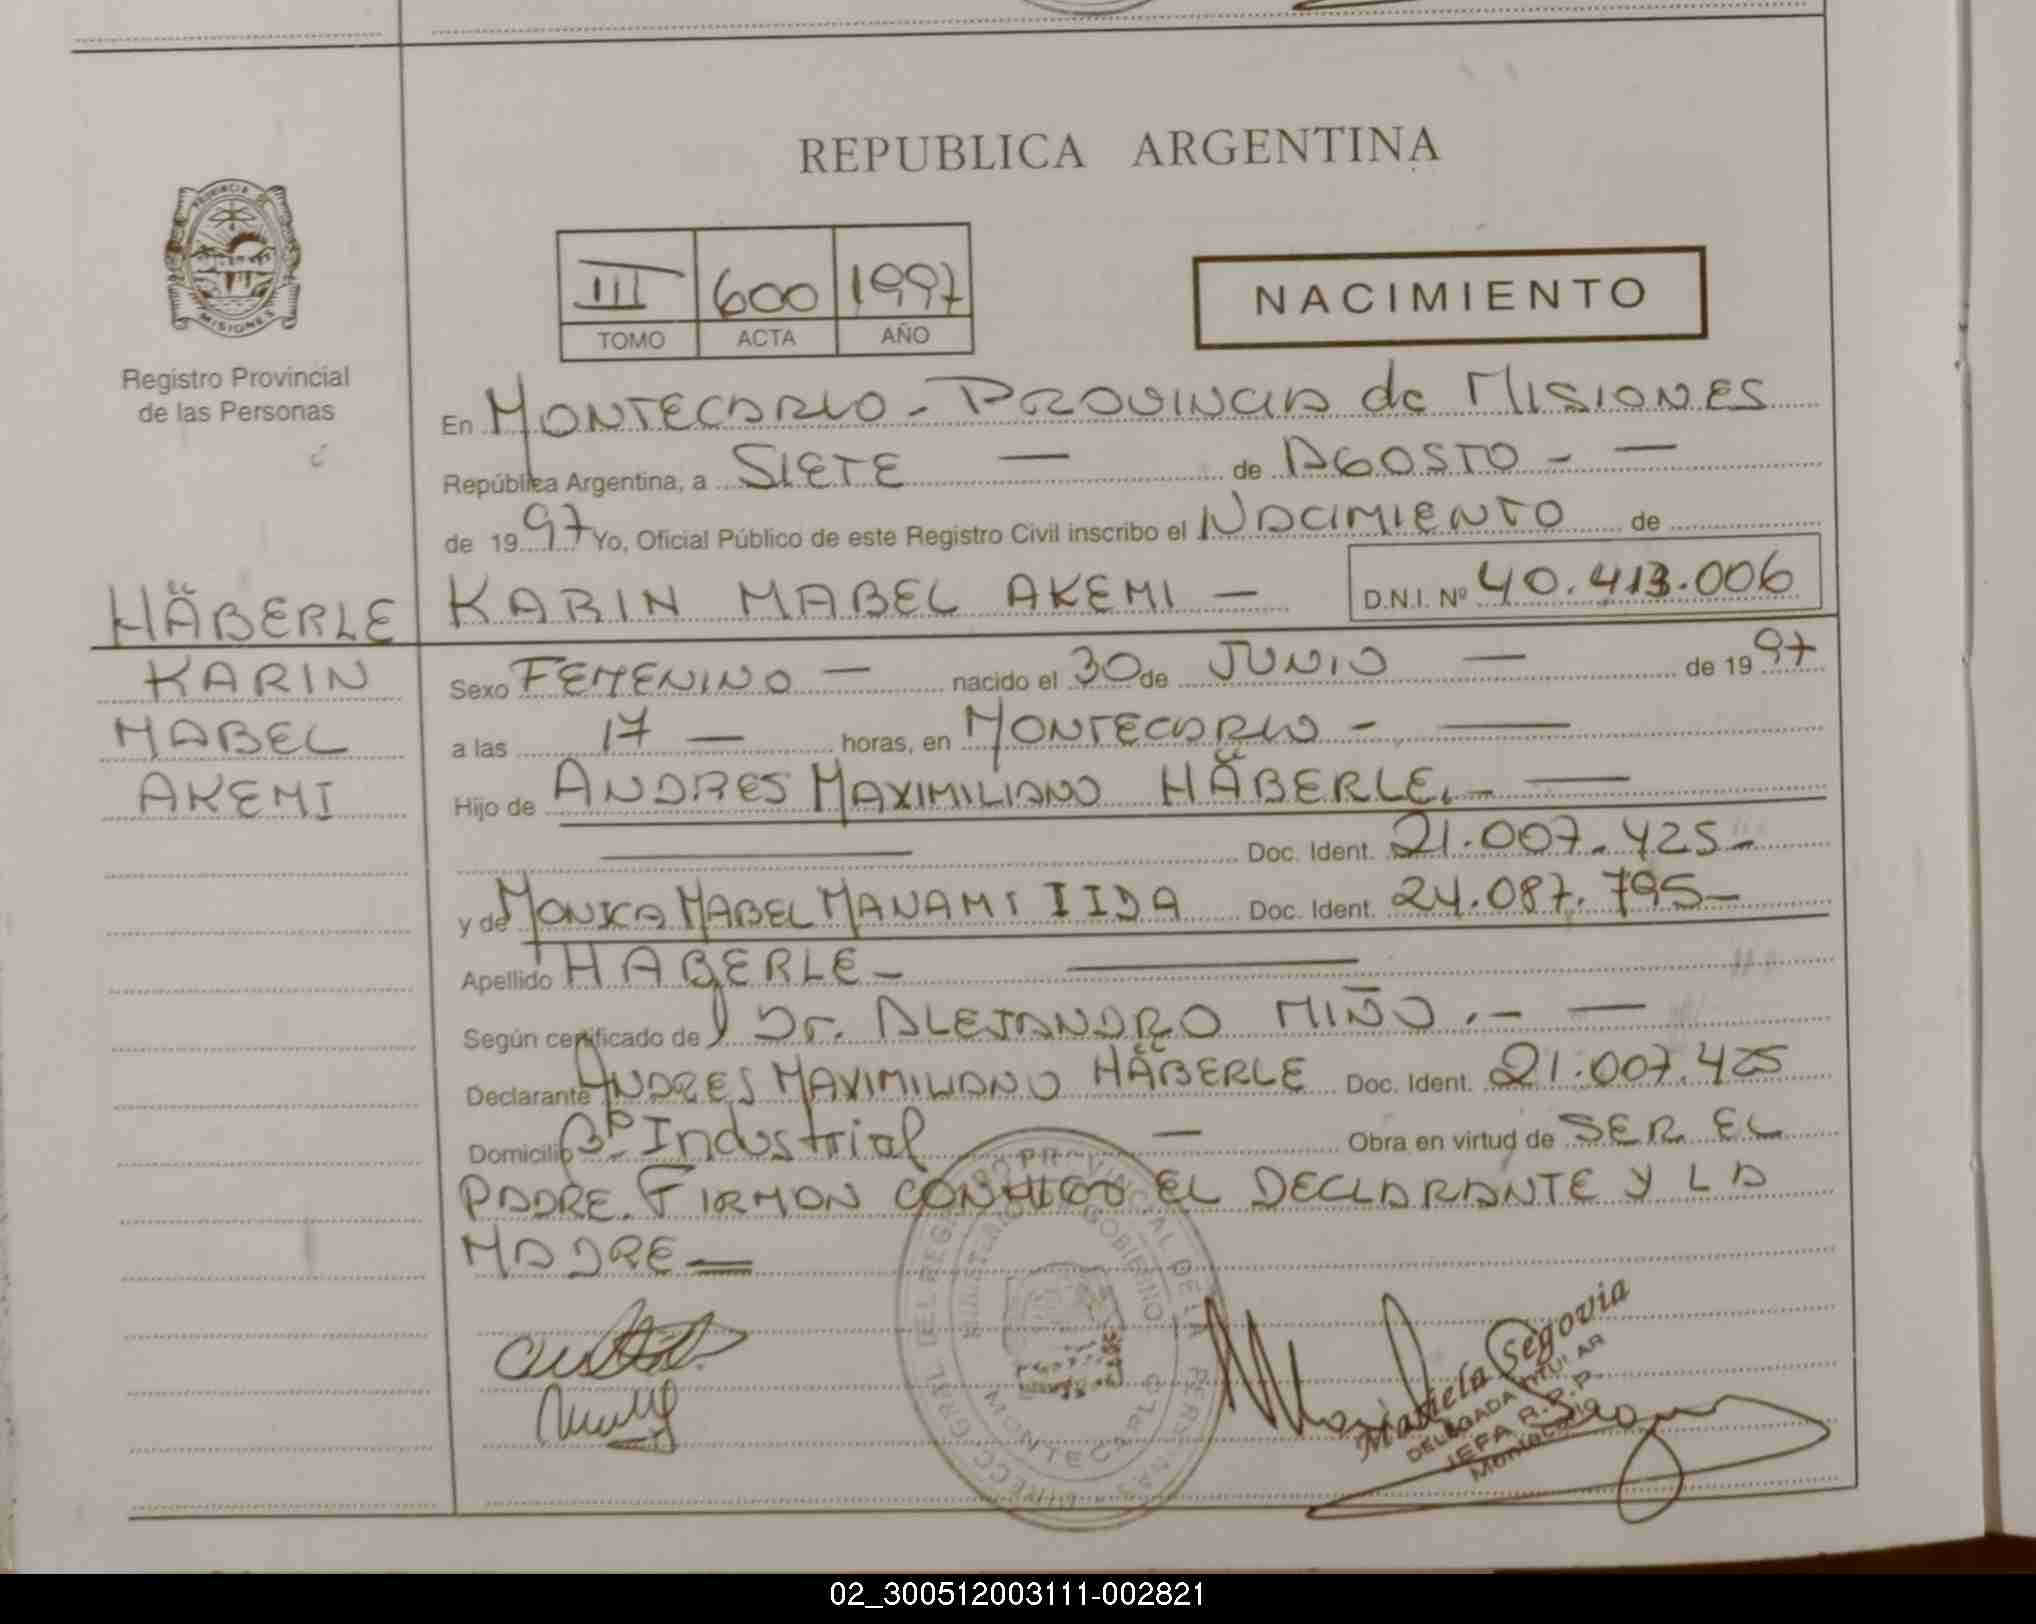 REPUBLICA ARGENTINA
PROVINCIA DE
MISIONES
III 600 1997
TOMO ACTA AÑO
NACIMIENTO
Registro Provincial
de las Personas
En MONTECARLO - PROVINCIA de MISIONES
República Argentina, a SIETE — de AGOSTO - —
de 1997 Yo, Oficial Público de este Registro Civil inscribo el NACIMIENTO de
HÄBERLE
KARIN MABEL AKEMI — D.N.I. Nº 40.413.006
KARIN
MABEL
AKEMI
Sexo FEMENINO — nacido el 30 de JUNIO — de 1997
a las 17 — horas, en MONTECARLO - —
Hijo de ANDRES MAXIMILIANO HÄBERLE.- —
— Doc. Ident. 21.007.425-
y de MONICA MABEL MANAMI IIDA Doc. Ident. 24.087.795-
Apellido HABERLE - —
Según certificado de Dr. ALEJANDRO MIÑO .- —
Declarante ANDRES MAXIMILIANO HÄBERLE Doc. Ident. 21.007.425
Domicilio Bº Industrial — Obra en virtud de SER EL
PADRE. FIRMAN CONMIGO EL DECLARANTE Y LA
MADRE =
DIRECC. GRAL. DEL REGISTRO PROVINCIAL DE LA PERSONAS
GOBIERNO
MONTECARLO
Mariela Segovia
DELEGADA TITULAR
JEFA R.P.P.
Montecarlo
02_300512003111-002821